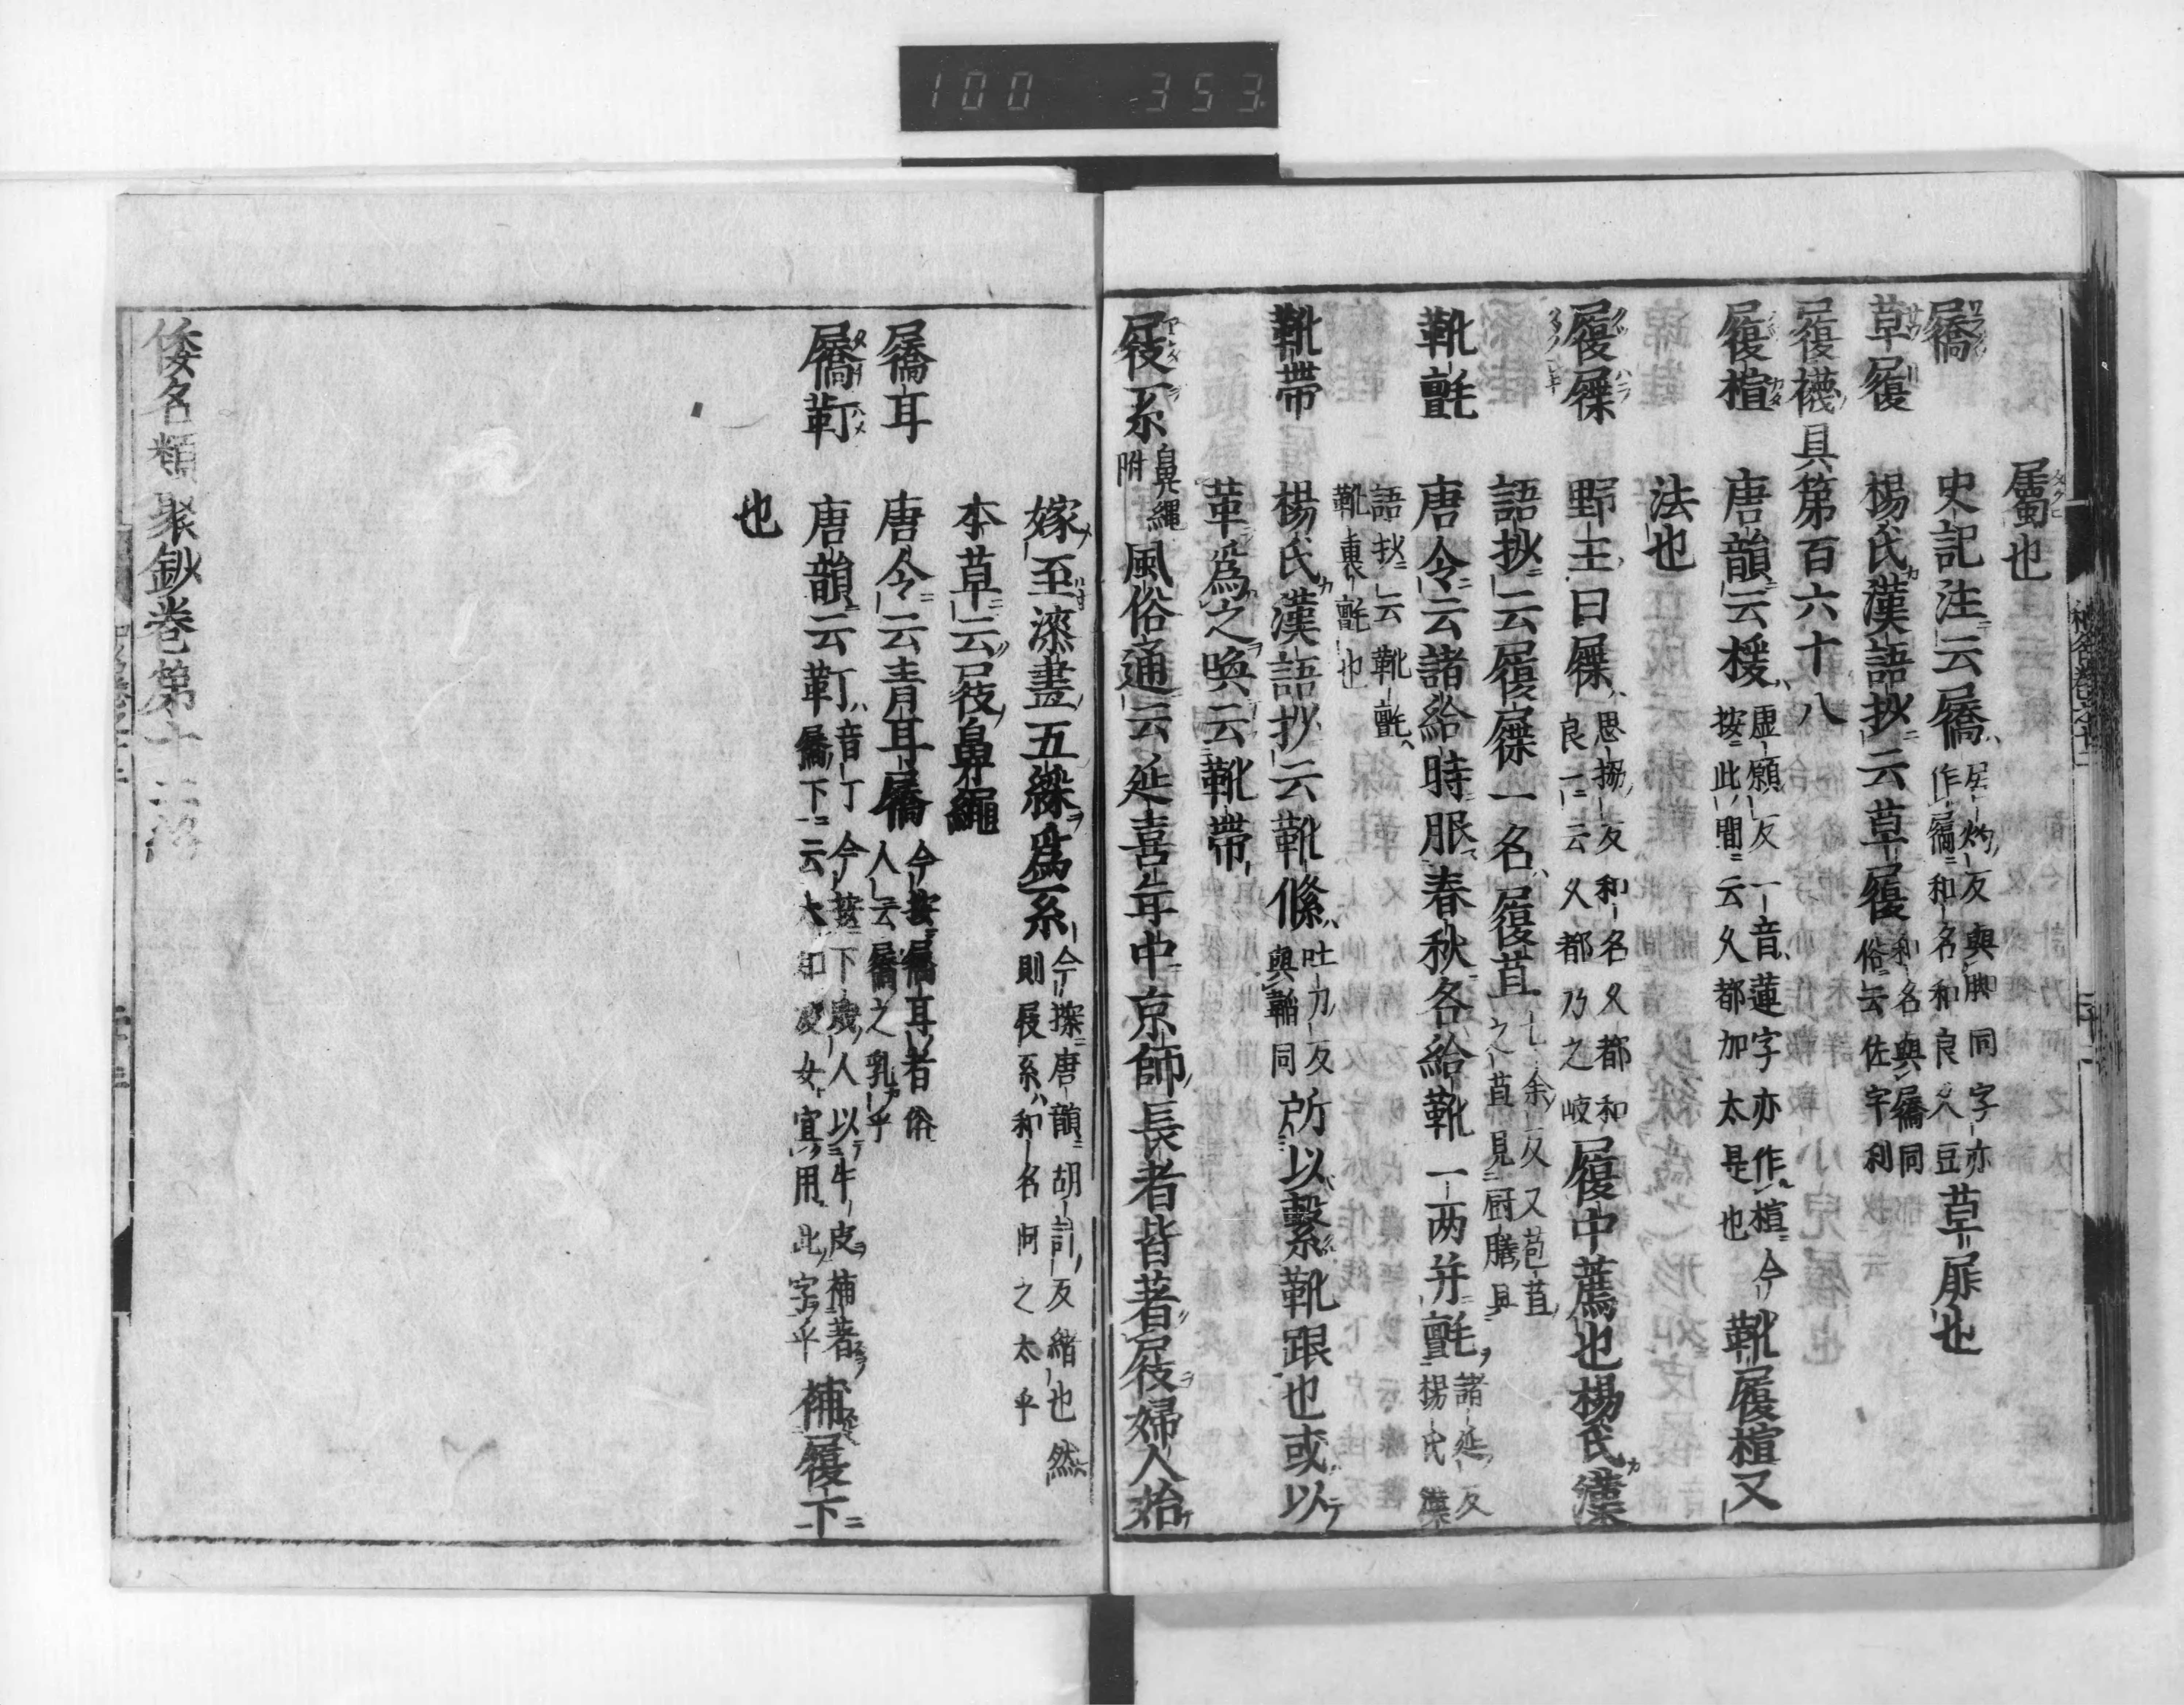 100 353
屬也
屩 史記注云屩居灼反與脚同字亦作𪨗和名和良久豆草屝也
草履 楊氏漢語抄云草履和名與屩同俗云佐宇利
屐襪具第百六十八
履楦 唐韻云楥虚願反一音蓮字亦作楦今按此間云久都加太是也靴履楦又
法也
履屧 野王曰屧思協反和名久都和良一云久都乃之岐履中薦也楊氏漢
語抄云履屧一名履苴七余反又苞苴之苴見厨膳具
靴氈 唐令云諸給時服春秋各給靴一両并氈諸延反楊氏漢
語抄云靴氈靴裏氈也
靴帯 楊氏漢語抄云靴絛吐刀反與韜同所以繋靴跟也或以
革為之喚云靴帶
屐系鼻縄附 風俗通云延喜年中京師長者皆著屐婦人始
嫁至漆畫五綵為系今按唐韻胡計反緒也然則屐系和名阿之太乎
本草云屐鼻繩
屩耳 唐令云青耳屩今按屩耳者俗人云屩之乳乎
屩靪 唐韻云靪音丁今按下賤人以牛皮補著屩下云太知女宜用此字乎補履下
也
倭名類聚鈔巻第十二終